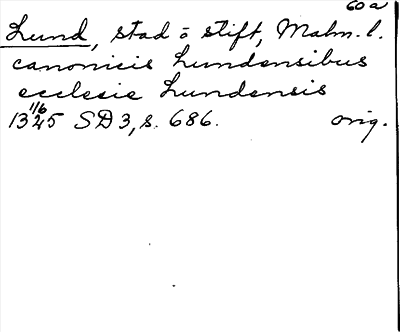 60 a
Lund, stad o stift, Malm. l.
canonicis Lundensibus
ecclesie Lundensis
1325 11/6 SD 3, s. 686. orig.